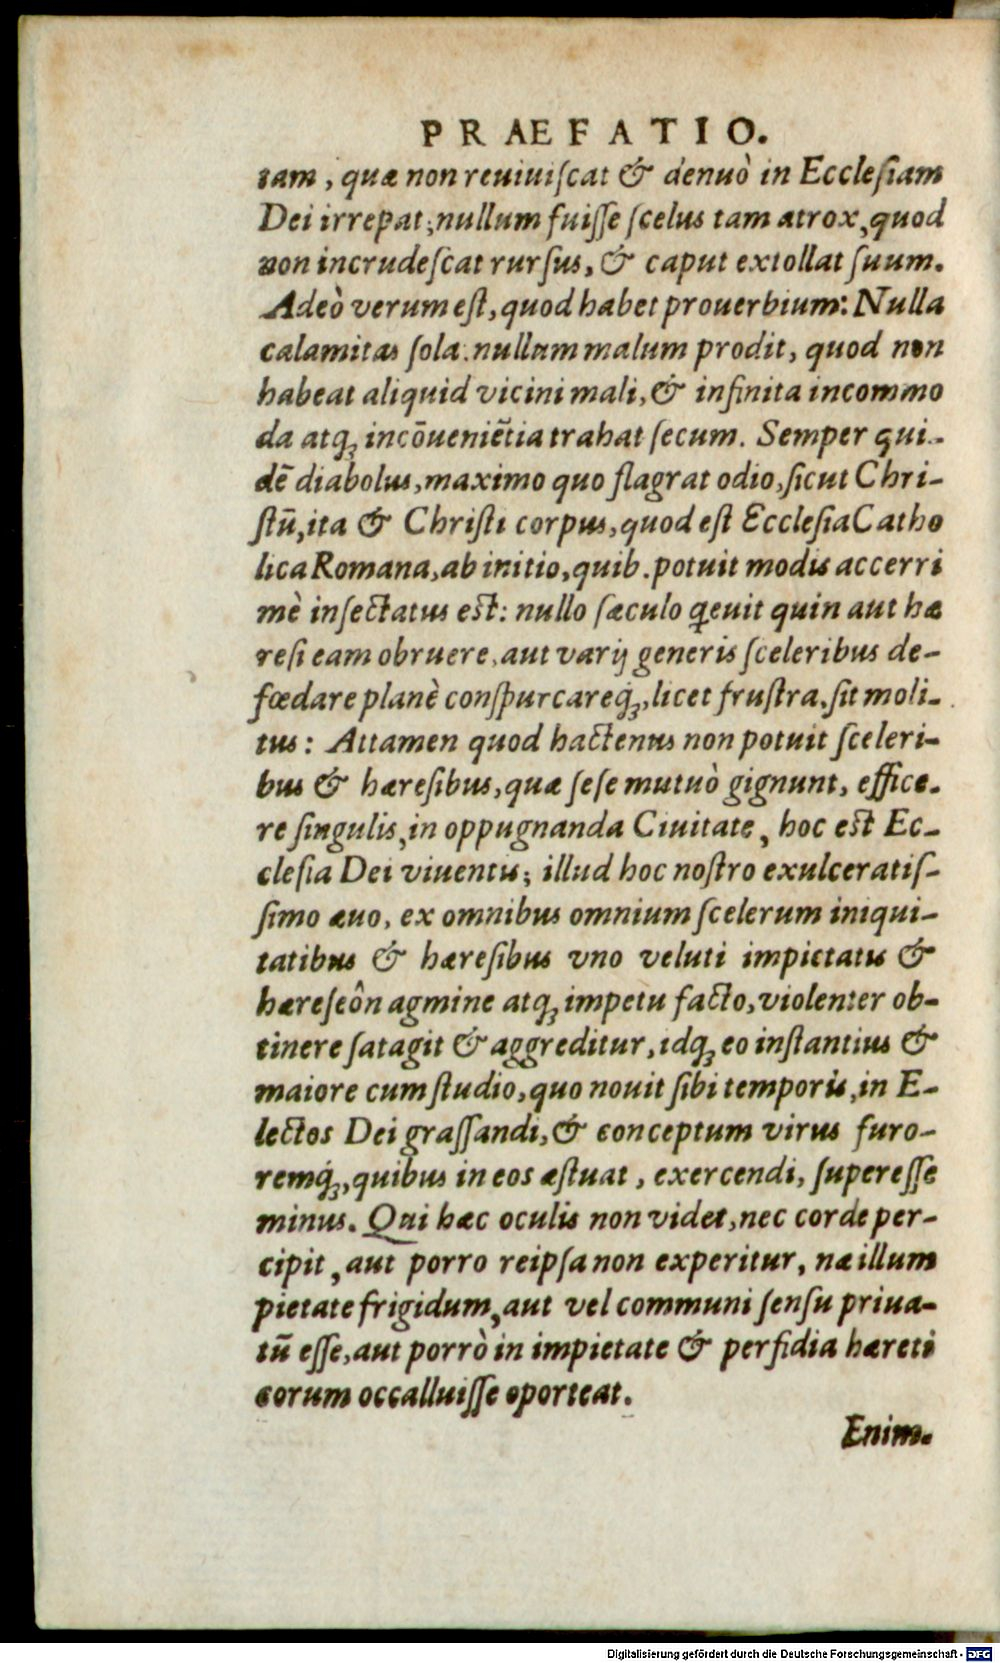 PRÆFATIO.
tam, quæ non reuiuiſcat & denuò in Eccleſiam
Dei irrepat; nullum fuiſſe ſcelus tam atrox, quod
non incrudeſcat rurſus, & caput extollat ſuum.
Adeò verum eſt, quod habet prouerbium: Nulla
calamitas ſola. nullum malum prodit, quod non
habeat aliquid vicini mali, & infinita incommo
da atqꝫ incōueniẽtia trahat ſecum. Semper qui-
dẽ diabolus, maximo quo flagrat odio, ſicut Chri-
ſtũ, ita & Chriſti corpus, quod eſt Eccleſia Catho
lica Romana, ab initio, quib. potuit modis accerri
mè inſectatus eſt: nullo ſæculo q̃euit quin aut hæ
reſi eam obruere, aut varij generis ſceleribus de-
fœdare planè conſpurcareq́ꝫ, licet fruſtra, ſit moli-
tus: Attamen quod hactenus non potuit ſceleri-
bus & hæreſibus, quæ ſeſe mutuò gignunt, effice-
re ſingulis, in oppugnanda Ciuitate, hoc eſt Ec-
cleſia Dei viuentis; illud hoc noſtro exulceratiſ-
ſimo æuo, ex omnibus omnium ſcelerum iniqui-
tatibus & hæreſibus vno veluti impietatis &
hæreſeôn agmine atqꝫ impetu facto, violenter ob-
tinere ſatagit & aggreditur, idqꝫ eo inſtantius &
maiore cum ſtudio, quo nouit ſibi temporis, in E-
lectos Dei graſſandi, & conceptum virus furo-
remq́ꝫ, quibus in eos æſtuat, exercendi, ſupereſſe
minus. Qui hæc oculis non videt, nec corde per-
cipit, aut porro reipſa non experitur, næ illum
pietate frigidum, aut vel communi ſenſu priua-
tũ eſſe, aut porrò in impietate & perfidia hæreti
corum occalluiſſe oporteat.
Enim.
Digitalisierung gefördert durch die Deutsche Forschungsgemeinschaft - DFG